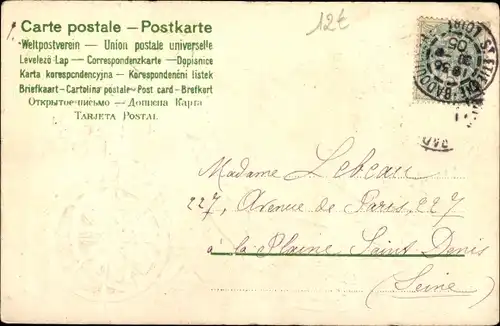 12€
Carte postale — Postkarte
Weltpostverein — Union postale universelle
Levelező Lap — Correspondenzkarte — Dopisnice
Karta korespondencyjna — Korespondenční lístek
Briefkaart — Cartolina postale — Post card — Brefkort
Открытое письмо — Дописна Карта
TARJETA POSTAL
ST ETIENNE-BADOUIL
LOIRE
Madame Lebeau
227, Avenue de Paris, 227
à la Plaine Saint Denis
(Seine)